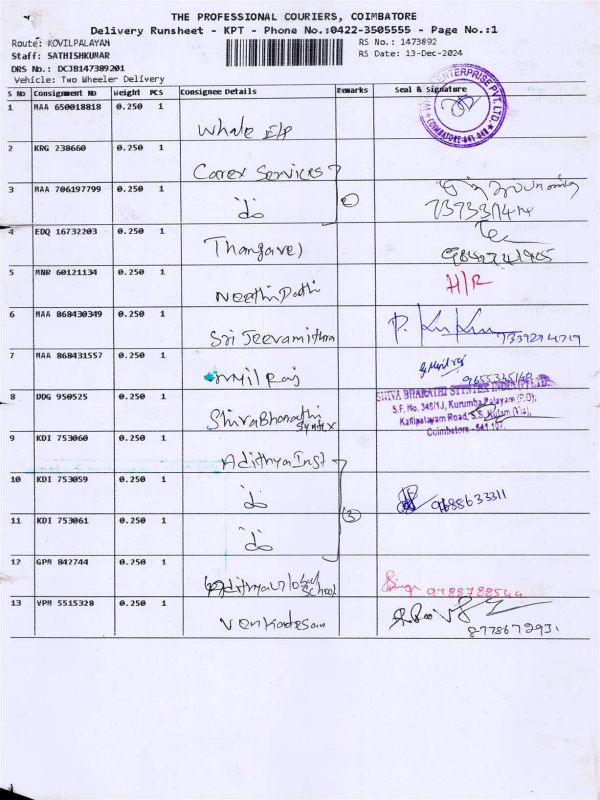 THE PROFESSIONAL COURIERS, COIMBATORE
Delivery Runsheet - KPT - Phone No.:0422-3505555 - Page No.:1
Route: KOVILPALAYAM
RS No.: 1473892
Staff: SATHISHKUMAR
RS Date: 13-Dec-2024
DRS No.: DCJB147389201
Vehicle: Two Wheeler Delivery
S No Consignment No Weight PCS Consignee Details Remarks Seal & Signature
1 MAA 650018818 0.250 1 Whale E/P
ENTERPRISE PVT. LTD. COIMBATORE-641
2 KRG 238660 0.250 1 Carex Services
3 MAA 706197799 0.250 1 do 2
4 EDQ 16732203 0.250 1 Thangavel
5 MNR 60121134 0.250 1 NeethiPathi H/R
6 MAA 868430349 0.250 1 Sri Jeevamithra
7 MAA 868431557 0.250 1 Mayil Raj
8 DDG 950525 0.250 1 Shiva Bharathi Syntex
SHIVA BHARATHI SYNTEX INDIA (P) LTD.
S.F. No. 349/1J, Kurumba Palayam (P.O),
Kalipalayam Road, S.S. Kulam (Via),
Coimbatore - 641 107.
9 KDI 753060 0.250 1 Adithya Inst
10 KDI 753059 0.250 1 do 3 9688633311
11 KDI 753061 0.250 1 do
12 GPM 842744 0.250 1 Adithya Global School
13 VPM 5515328 0.250 1 Venkatesan